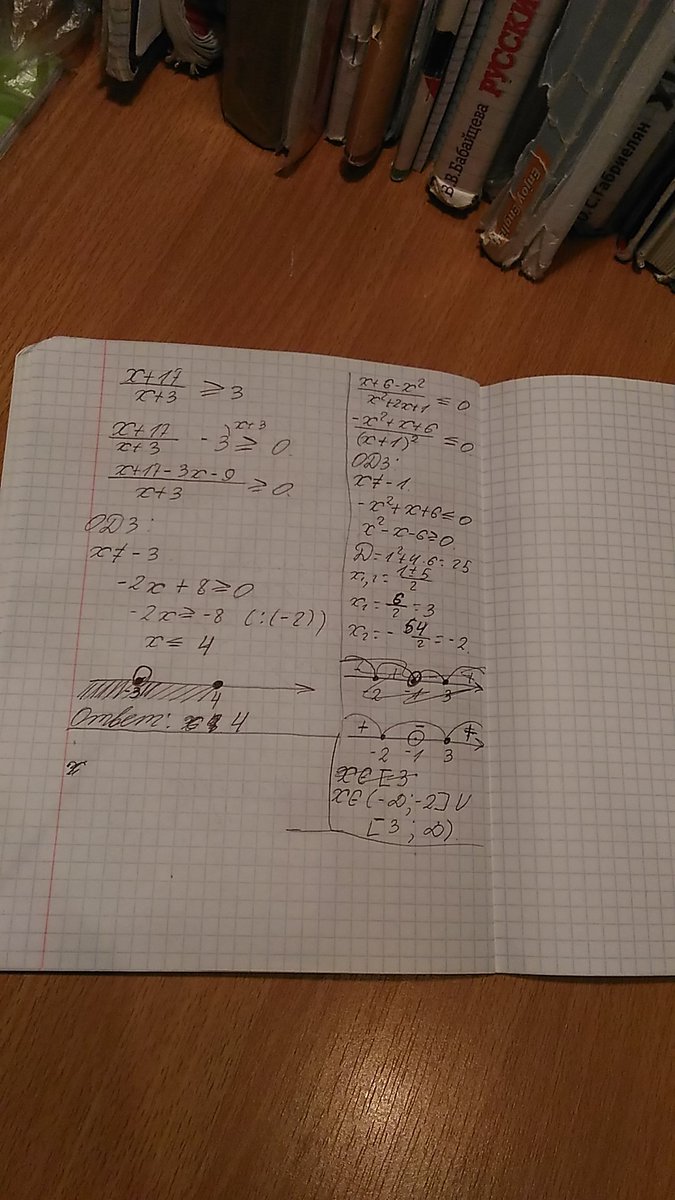 РУССКИ
В.В.Бабайцева
Enjoy Engli
О.С.Габриелян
x+17/x+3 ≥ 3
x+17/x+3 - 3^x+3 ≥ 0
x+17-3x-9/x+3 ≥ 0
ОДЗ:
x≠-3
-2x+8≥0
-2x≥-8 (:(-2))
x≤ 4
-3 4
Ответ: 4
x
x+6-x²/x²+2x+1 ≤ 0
-x²+x+6/(x+1)² ≤ 0
ОДЗ:
x≠-1
-x²+x+6≤0
x²-x-6≥0
D=1²+4·6=25
x₁,₂=1±5/2
x₁=6/2=3
x₂=-4/2=-2
-2 -1 3 +
+ - +
-2 -1 3
x∈[3
x∈(-∞;-2]∪
[3;∞)